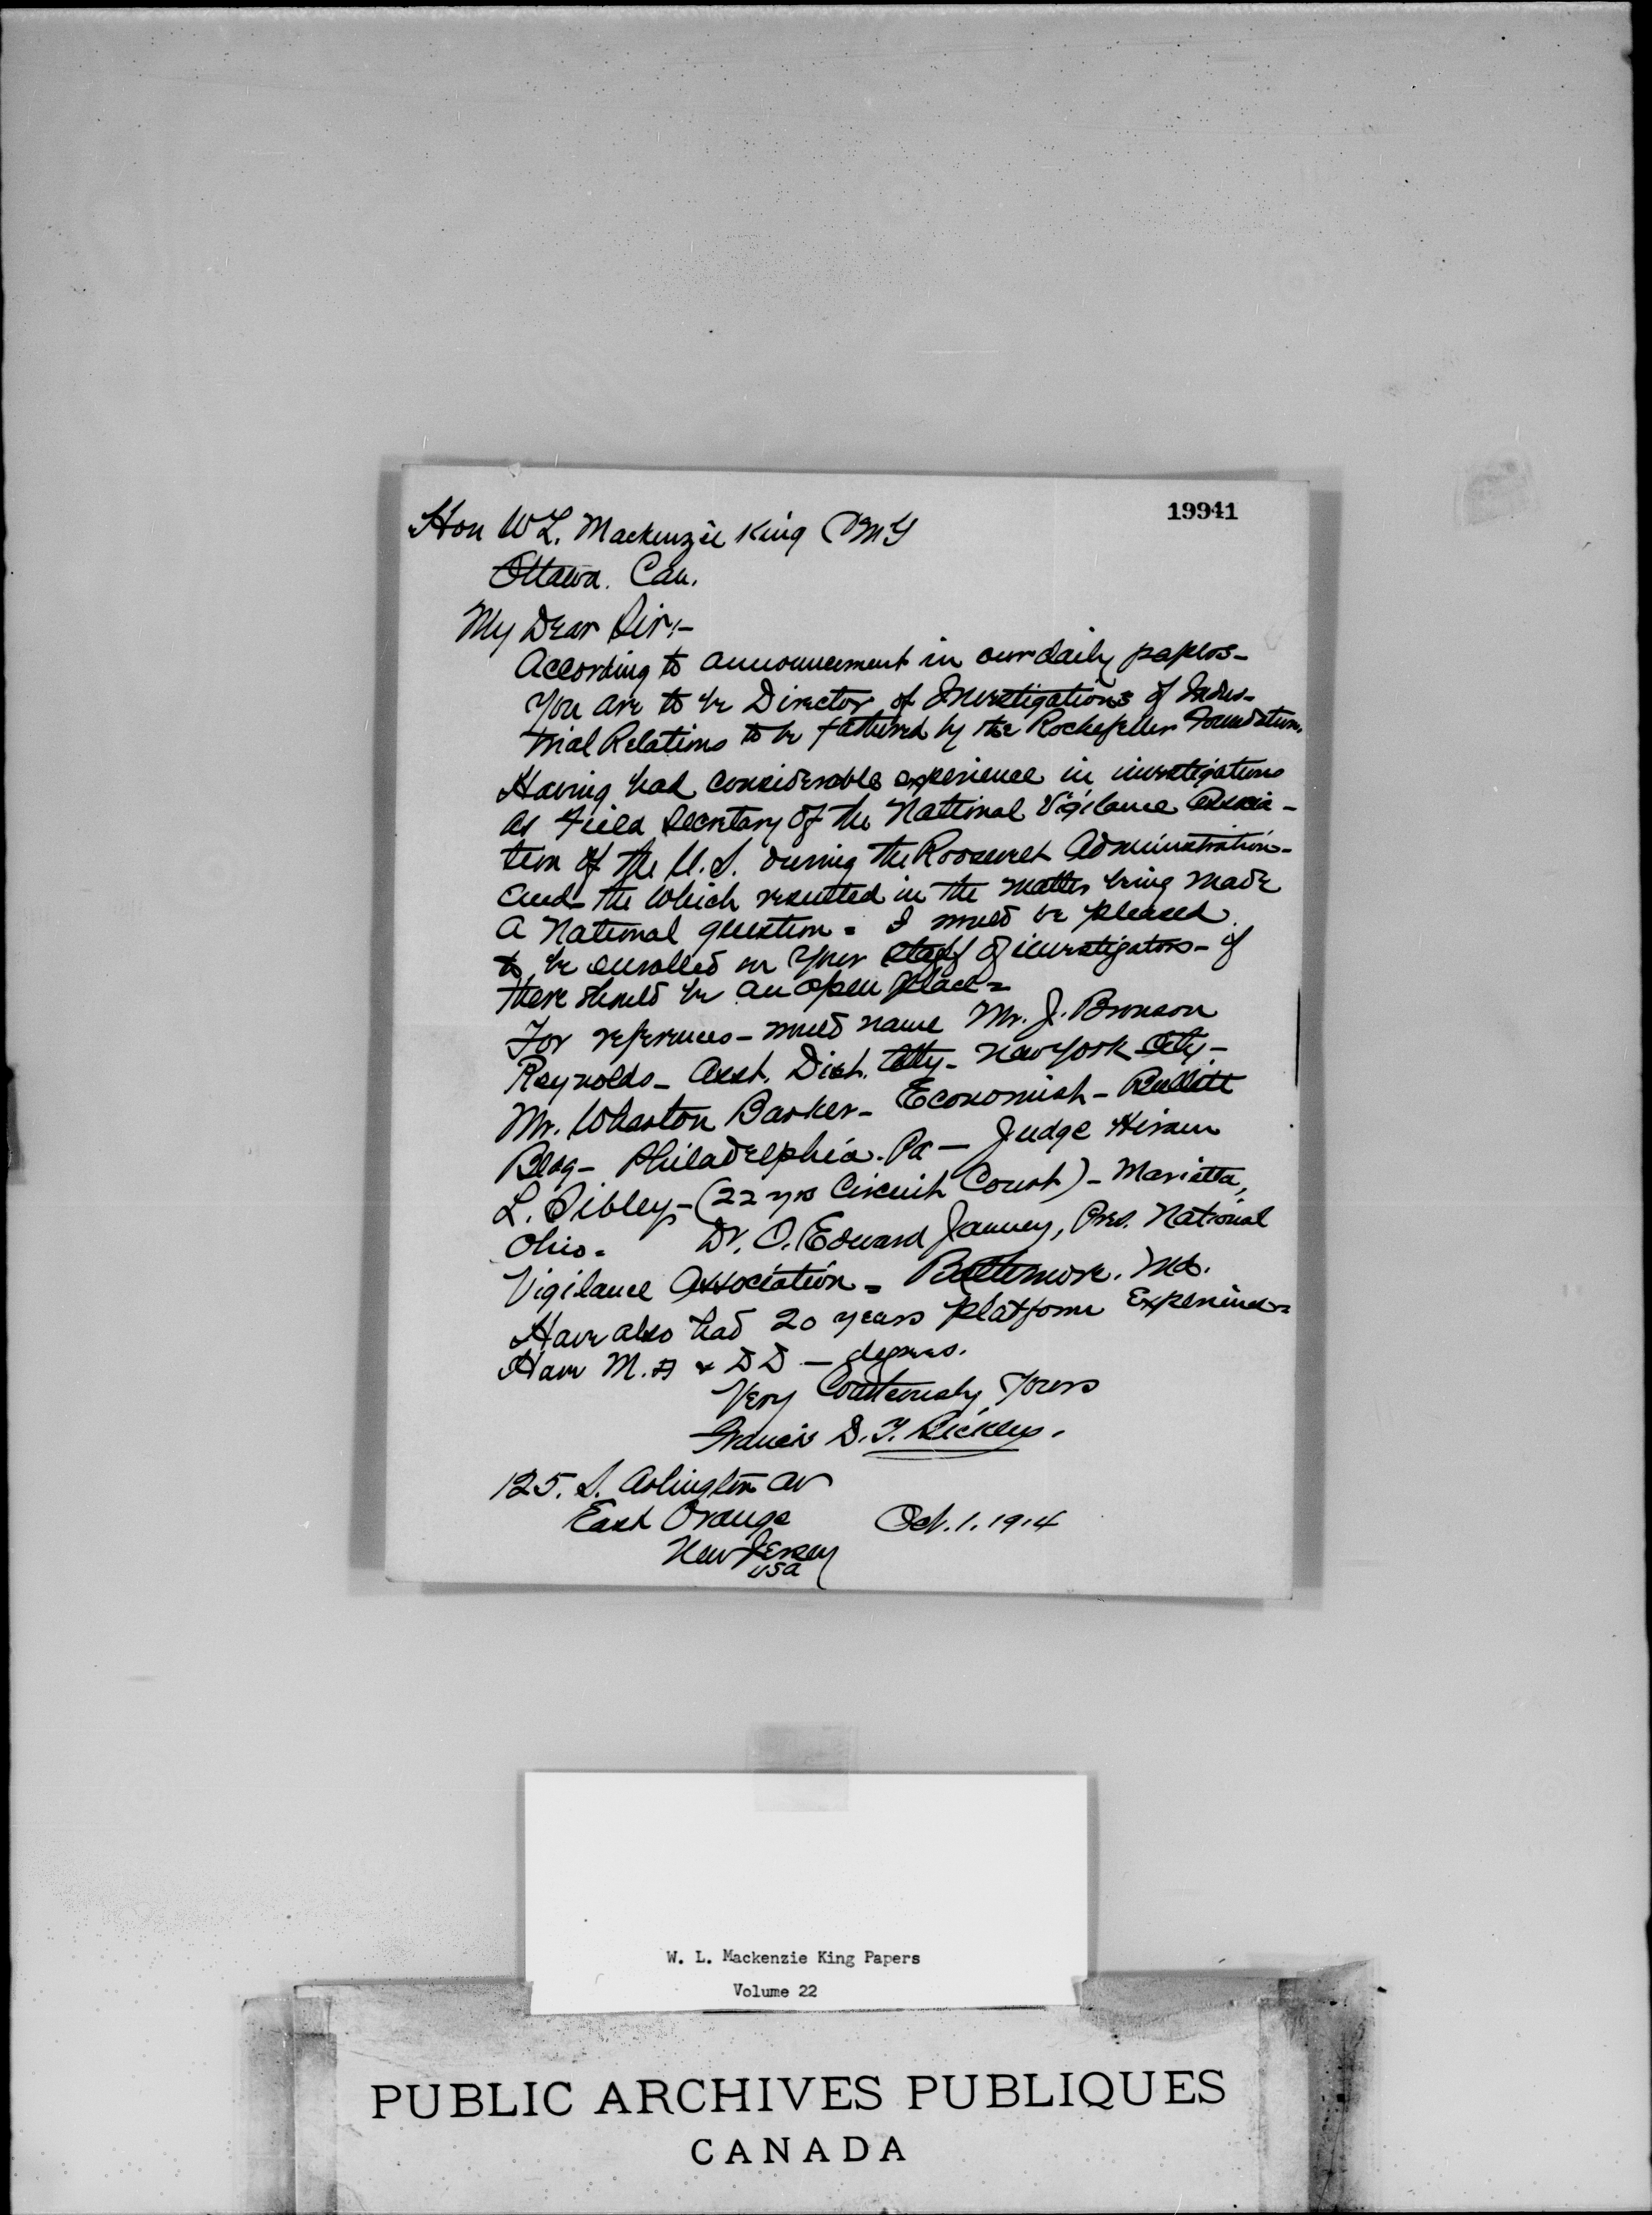 19941
Hon W L. Mackenzie King CMG
Ottawa. Can.
My Dear Sir:-
According to announcement in our daily papers-
You are to be Director of Investigations of Indus-
trial Relations to be fathered by the Rockefeller Foundation.
Having had considerable experience in investigations
as Field Secretary of the National Vigilance Associa-
tion of the U.S. during the Roosevelt Administration-
and the which resulted in the matter being made
a National question = I would be pleased
to be enrolled on your staff of investigators - if
there should be an open place =
For references - would name Mr. J. Bronson
Reynolds - Asst. Dist. Atty - New York City -
Mr. Wharton Barker - Economist - Bullitt
Bldg - Philadelphia. Pa - Judge Hiram
L. Sibley - (22 yrs Circuit Court) - Marietta,
Ohio = Dr. O. Edward Janney, Pres. National
Vigilance Association = Baltimore. Md.
Have also had 20 years platform Experience=
Have M.A & D D - degrees.
Very Courteously Yours
Francis S. T.
125. S. Arlington Av
East Orange Oct. 1. 1914
New Jersey
USA
W. L. Mackenzie King Papers
Volume 22
PUBLIC ARCHIVES PUBLIQUES
CANADA